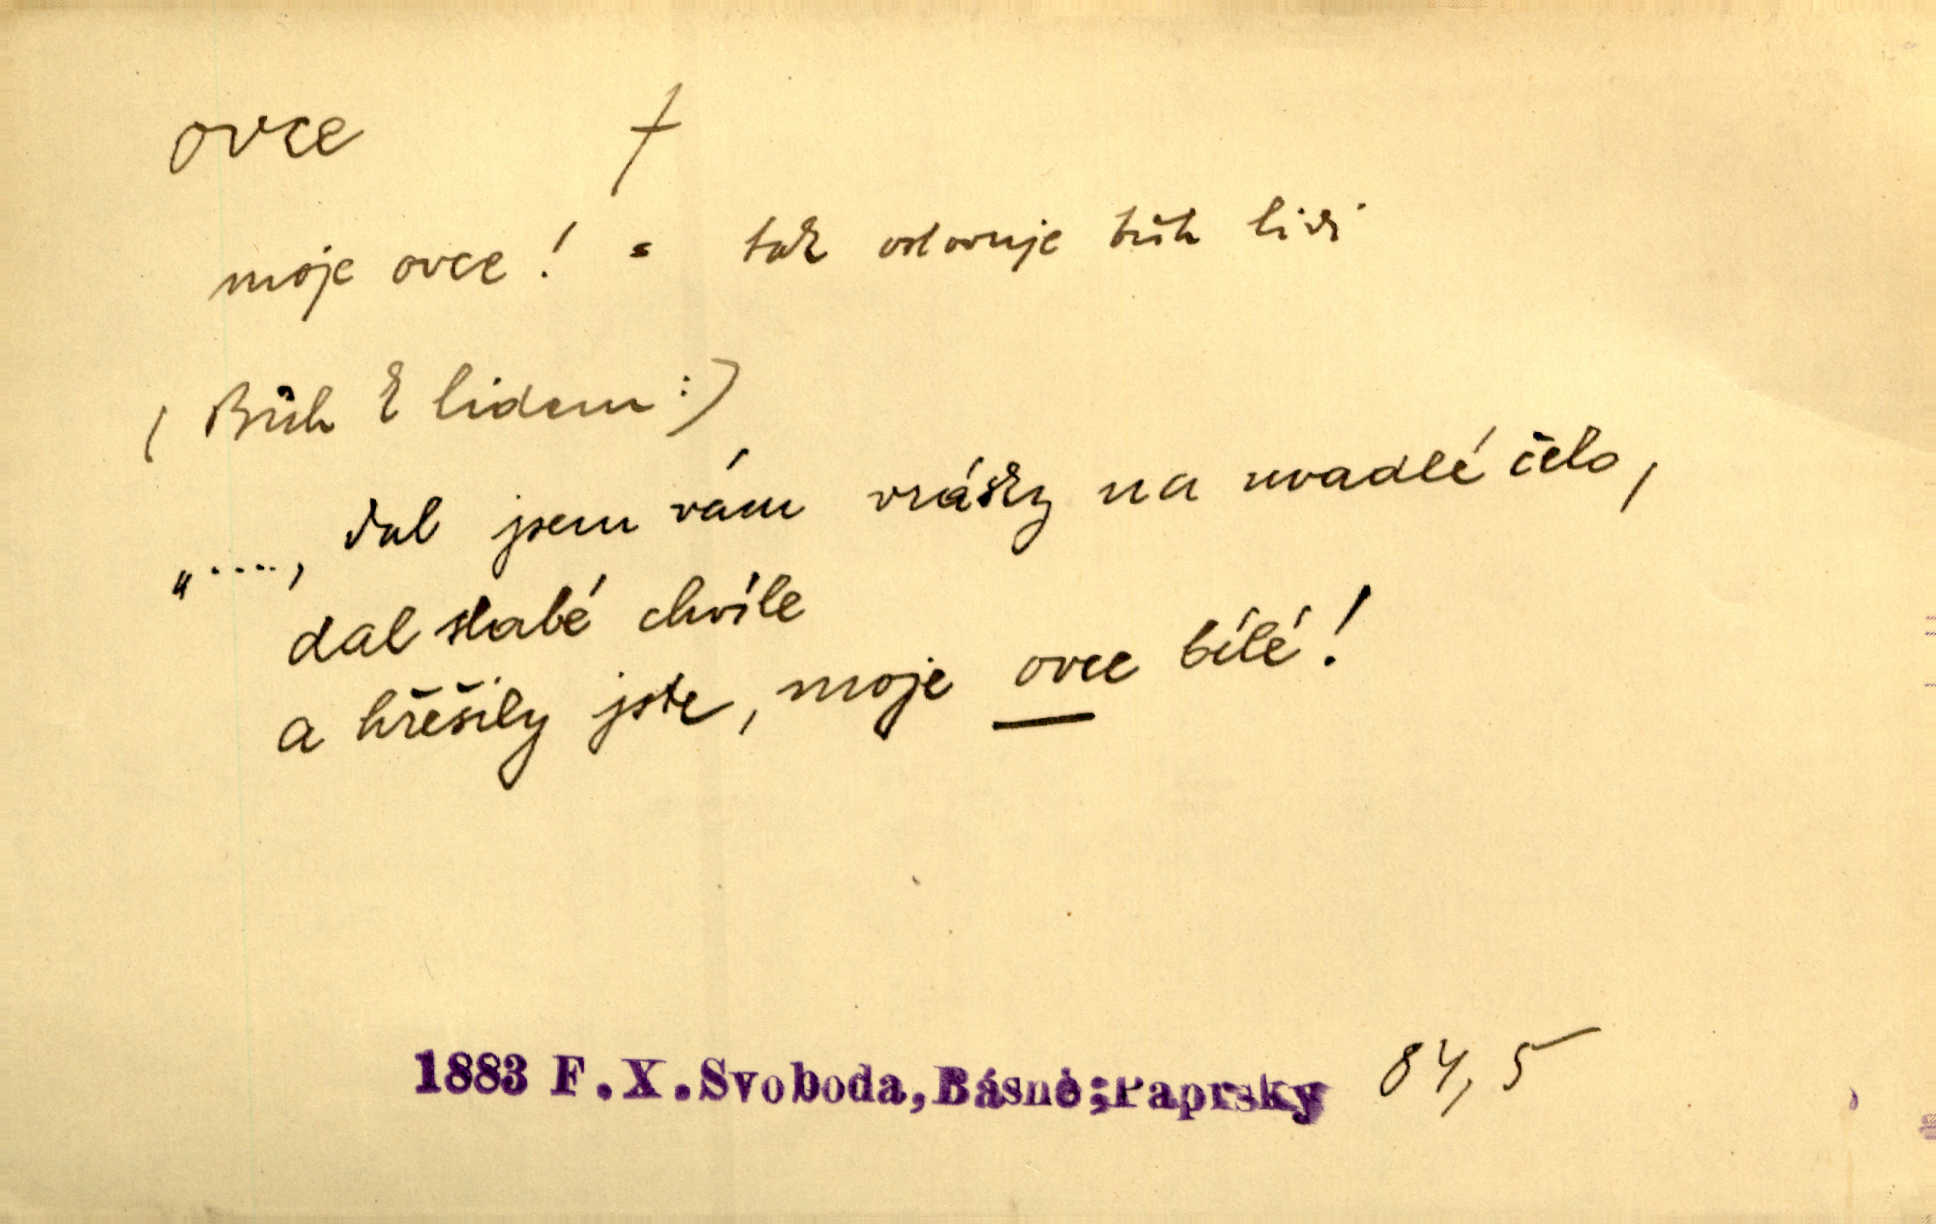 ovce †
moje ovce! = tak oslovuje bůh lidi
(Bůh k lidem:)
„...., dal jsem vám vrásky na uvadlé čelo,
dal slabé chvíle
a hřěšily jste, moje ovce bílé!
1883 F.X.Svoboda,Básně;Paprsky 84,5